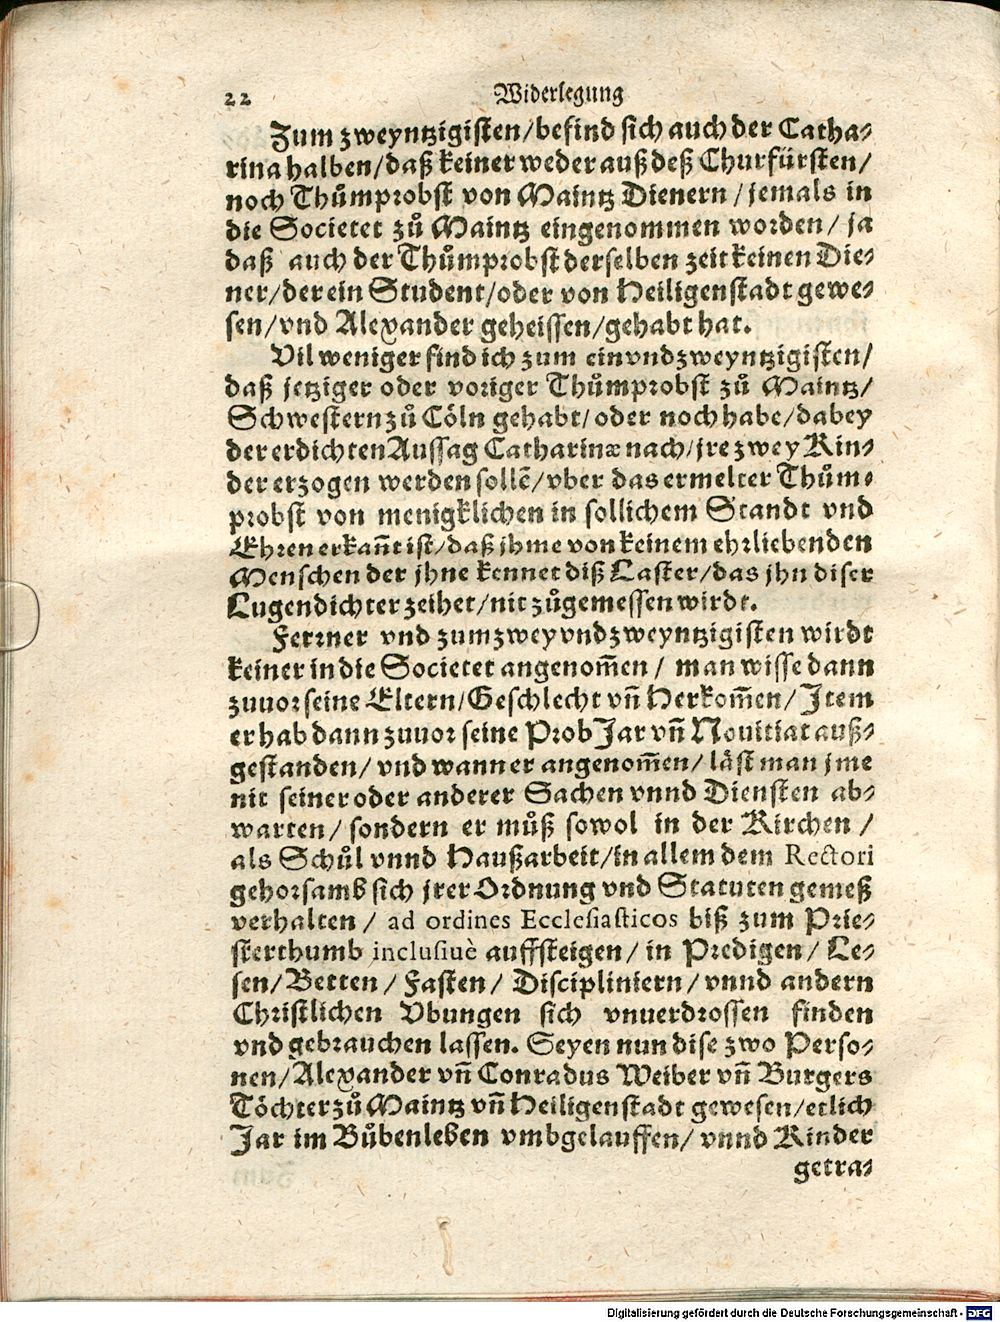 22 Widerlegung
Zum zweyntzigisten/befind sich auch der Catha-
rina halben/daß keiner weder auß deß Churfürsten/
noch Thůmprobst von Maintz Dienern/jemals in
die Societet zů Maintz eingenommen worden/ja
daß auch der Thůmprobst derselben zeit keinen Die-
ner/der ein Student/oder von Heiligenstadt gewe-
sen/vnd Alexander geheissen/gehabt hat.
Vil weniger find ich zum einvndzweyntzigisten/
daß jetziger oder voriger Thůmprobst zů Maintz/
Schwestern zů Cöln gehabt/oder noch habe/dabey
der erdichten Aussag Catharinæ nach/jre zwey Kin-
der erzogen werden sollē/vber das ermelter Thům-
probst von menigklichen in sollichem Standt vnd
Ehren erkañt ist/daß jhme von keinem ehrliebenden
Menschen der jhne kennet diß Laster/das jhn diser
Lugendichter zeihet/nit zůgemessen wirdt.
Ferrner vnd zum zwey vnd zweyntzigisten wirdt
keiner in die Societet angenom̃en/man wisse dann
zuuor seine Eltern/Geschlecht vñ Herkom̃en/Item
er hab dann zuuor seine Prob Jar vñ Nouitiat auß-
gestanden/vnd wann er angenom̃en/läst man jme
nit seiner oder anderer Sachen vnnd Diensten ab-
warten/sondern er můß sowol in der Kirchen/
als Schůl vnnd Haußarbeit/in allem dem Rectori
gehorsamb sich jrer Ordnung vnd Statuten gemeß
verhalten/ad ordines Ecclesiasticos biß zum Prie-
sterthumb inclusiuè auffsteigen/in Predigen/Le-
sen/Betten/Fasten/Discipliniern/vnnd andern
Christlichen Vbungen sich vnuerdrossen finden
vnd gebrauchen lassen. Seyen nun dise zwo Perso-
nen/Alexander vñ Conradus Weiber vñ Burgers
Töchter zů Maintz vñ Heiligenstadt gewesen/etlich
Jar im Bůbenleben vmbgelauffen/vnnd Kinder
getra-
Digitalisierung gefördert durch die Deutsche Forschungsgemeinschaft - DFG